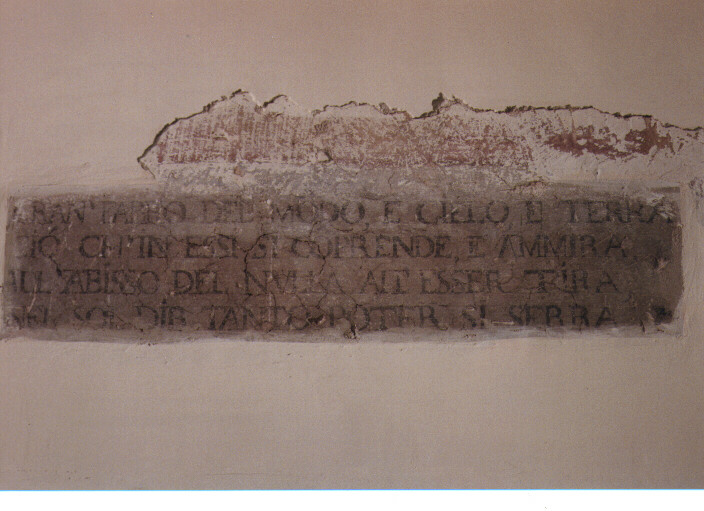 DEL MODO, E CIELO, E TERRA
CIO, CH' IN ESSI SI COPRENDE, E AMMIRA,
ALL' ABISSO DEL NULLA ALL' ESSER TIRA
SOL DIR TANTO POTER SI SERRA